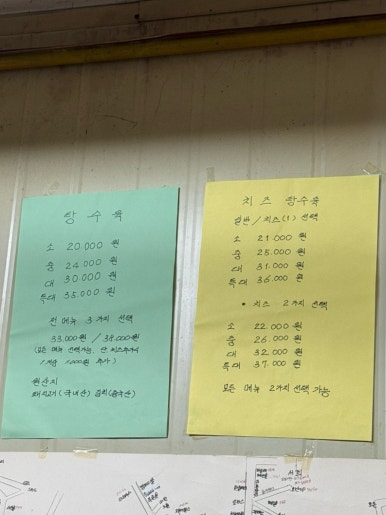 탕수육
소 20.000 원
중 24.000 원
대 30.000 원
특대 35.000 원
전 메뉴 3가지 선택
33.000원 / 38.000원
(모든 메뉴 선택가능, 단 치즈추가시
추가)
원산지
돼지고기 (국내산) 김치(중국산)
치즈 탕수육
일반 / 치즈(1) 선택
소 21.000 원
중 25.000 원
대 31.000 원
특대 36.000 원
• 치즈 2가지 선택
소 22.000 원
중 26.000 원
대 32.000 원
특대 37.000 원
모든 메뉴 2가지 선택 가능